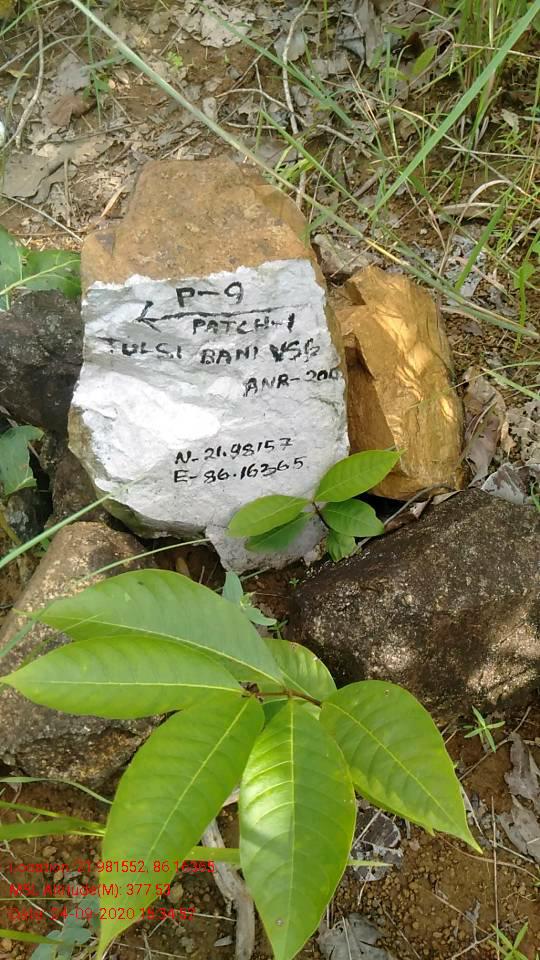 P-9
← PATCH-1
TULSI BANI VSS
ANR-200
N-21.98157
E-86.16365
Location: 21.981552, 86.16365
MSL Altitude(M): 377.53
Date: 24-09-2020 15:34:52